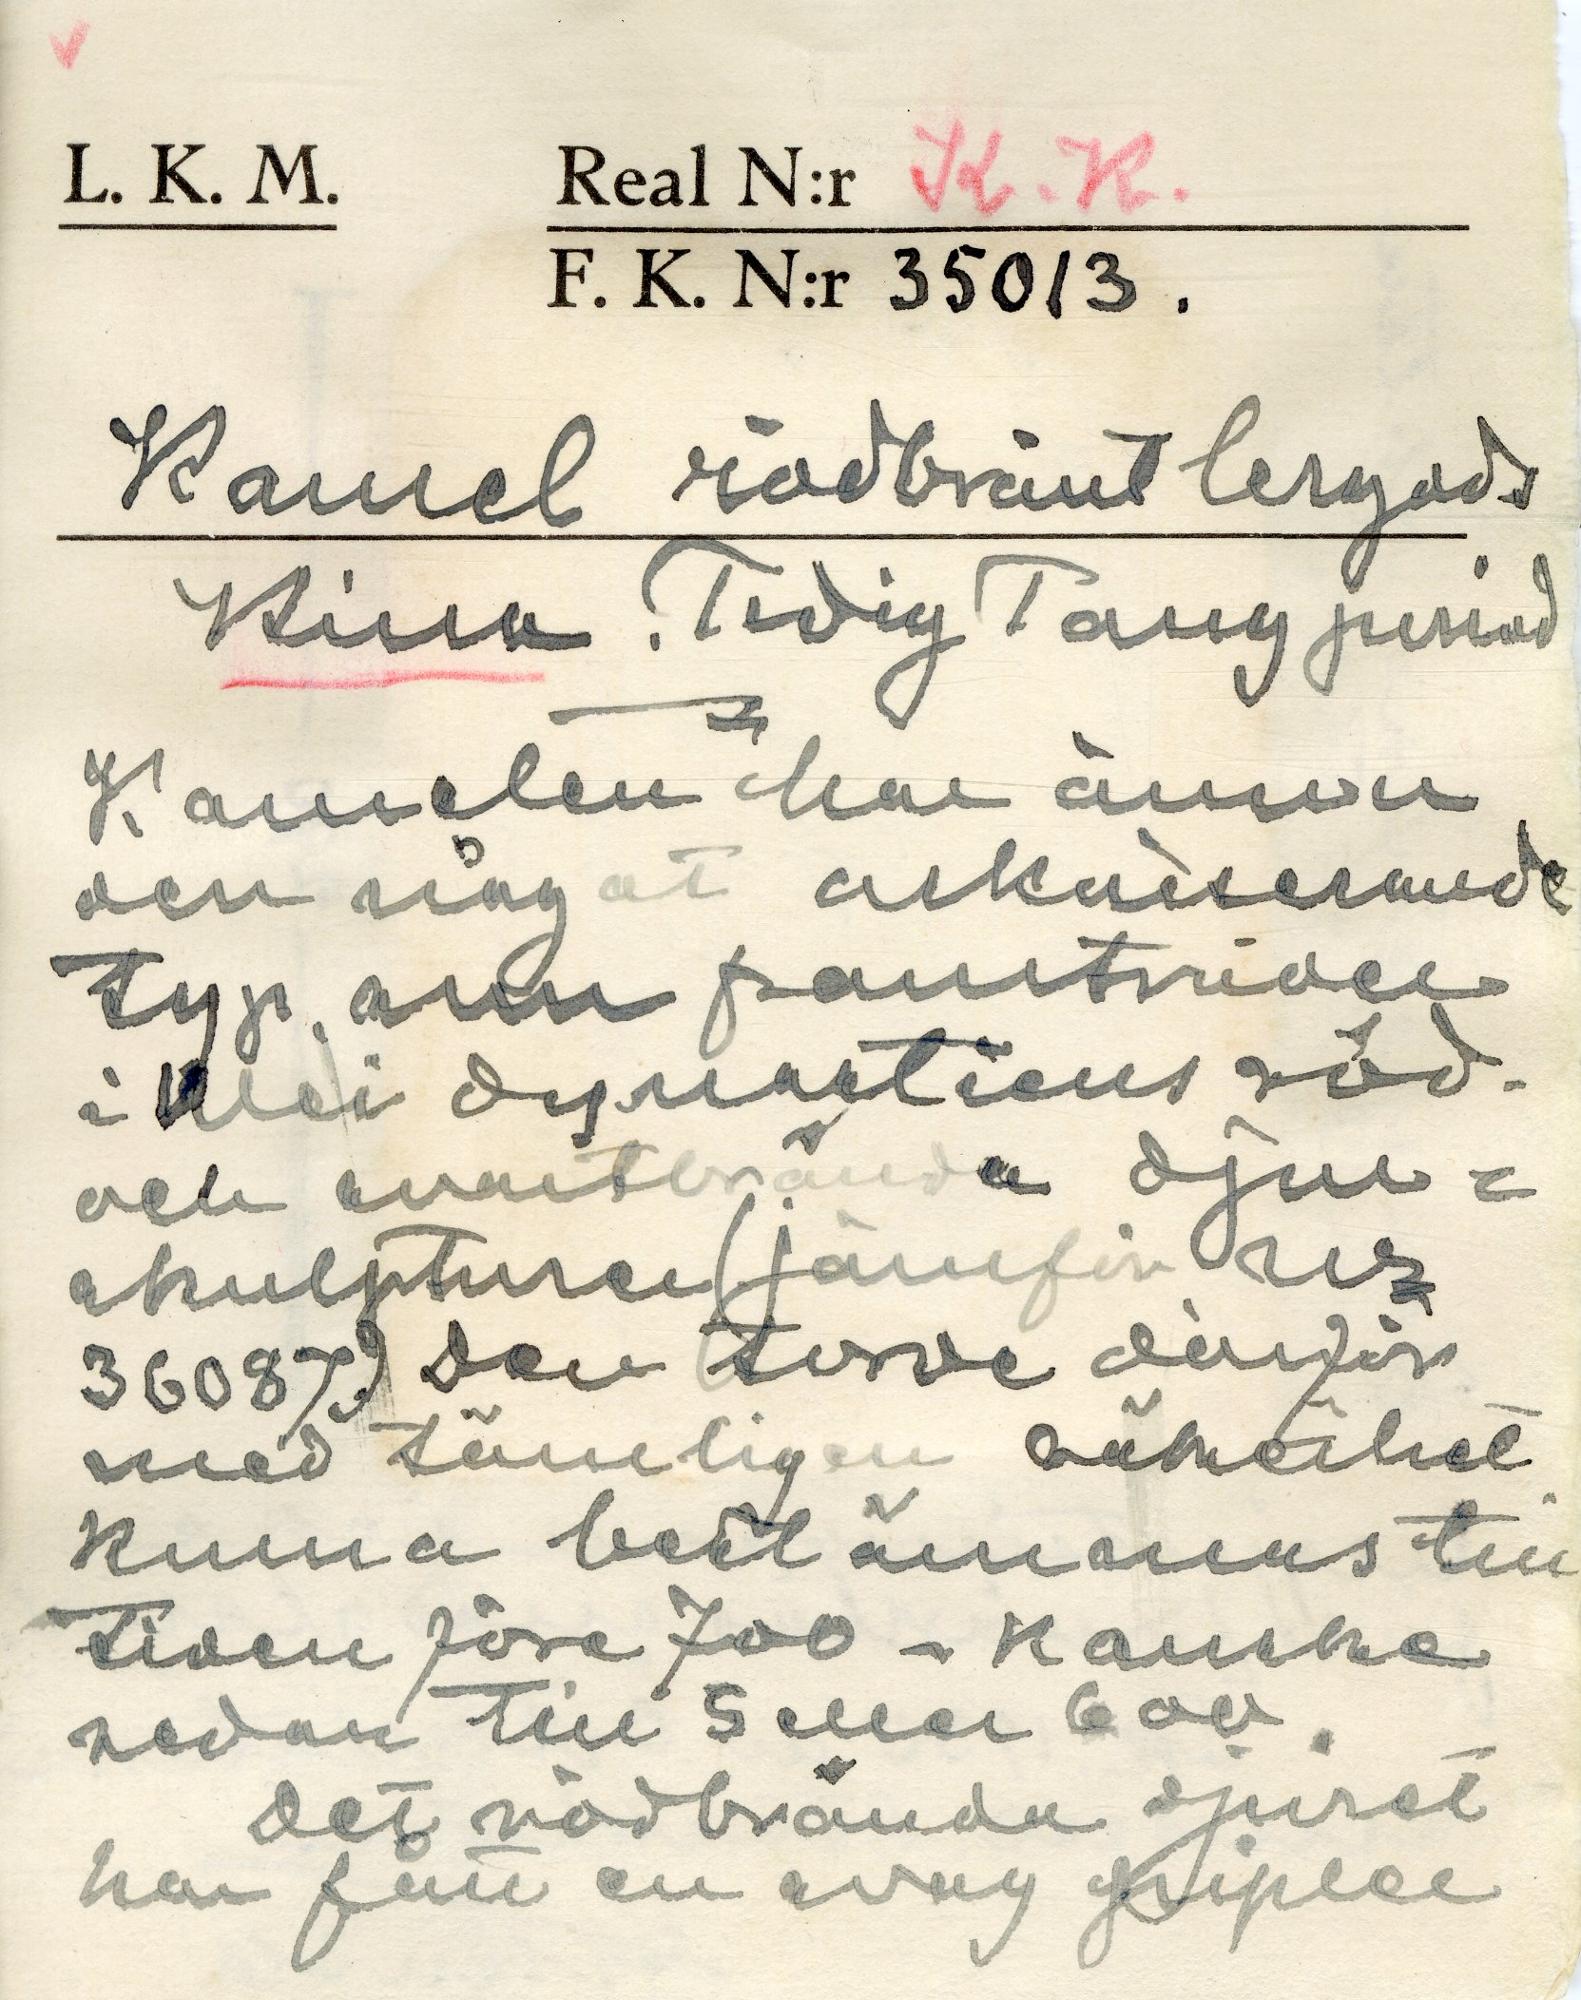 L. K. M.
Real N:r K. K.
F. K. N:r 35013.
Kamel rödbränt lergods
Kina. Tidig Tangperiod
Kamelen har ännu
den något arkaiserande
typ, som framträder
i Wei dynastiens röd-
och svartbrända djur=
skulpturer (jämför nr
36087.) Den torde därför
med tämligen säkerhet
kunna bestämmas till
tiden före 700 - kanske
redan till 5 eller 600.
Det rödbrända djuret
har fått en svag